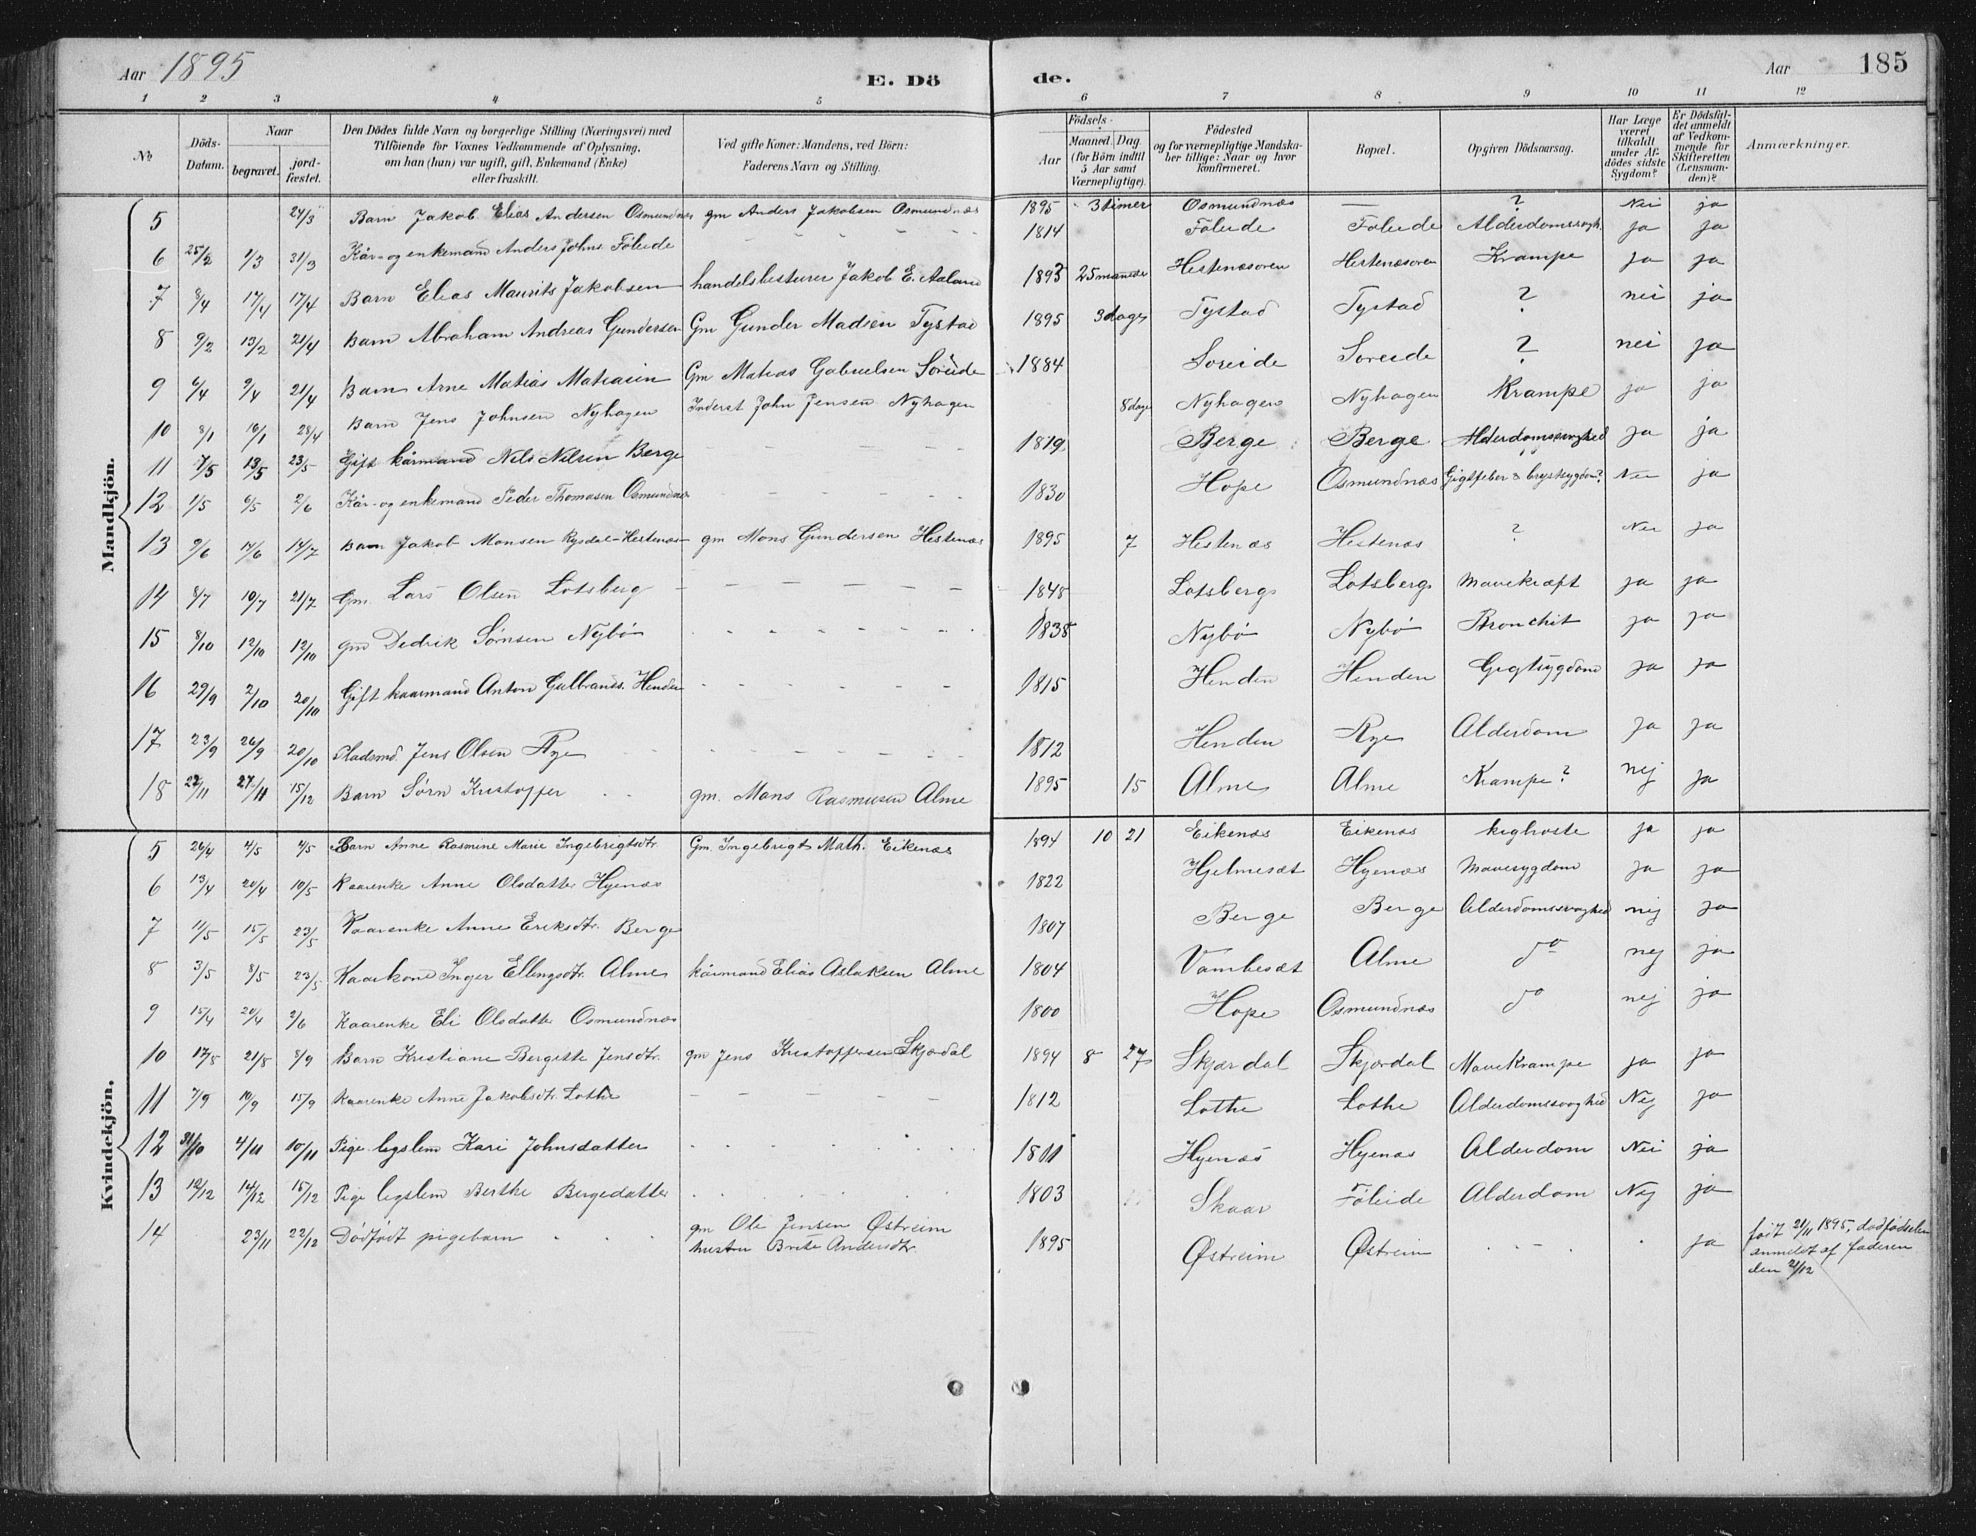 Aar 1895
E. Döde.
Aar
185
1 2 3 4 5 6 7 8 9 10 11 12
No
Döds-Datum.
Naar
begravet.
jord-fæstet.
Den Dödes fulde Navn og borgerlige Stilling (Næringsvei) med Tilföiende for Voxnes Vedkommende af Oplysning, om han (hun) var ugift, gift, Enkemand (Enke) eller fraskilt.
Ved gifte Koner: Mandens, ved Börn: Faderens Navn og Stilling.
Födsels-
Aar
Maaned. Dag
(for Börn indtil 5 Aar samt Værnepligtige).
Födested og for værnepligtige Mandskaber tillige: Naar og hvor konfirmeret.
Bopæl.
Opgiven Dödsaarsag.
Har Læge været tilkaldt under Afdödes sidste Sygdom?
Er Dödsfaldet anmeldt af Vedkommende for Skifteretten (Lensmanden)?
Anmærkninger.
Mandkjön.
5 24/3 Barn Jakob Elias Andersen Osmundnæs gm Anders Jakobsen Osmundnæs 1895 3 timer Osmundnæs — ? Nei ja
6 25/2 1/3 31/3 Kår- og enkemand Anders Johns. Föleide 1814 Föleide Föleide Alderdomssvagh. ja ja
7 8/4 17/4 17/4 Barn Elias Maurits Jakobsen handelsbestyrer Jakob E. Aaland 1893 25 maneder Hestenæsøren Hestenæsøren Krampe ja ja
8 9/2 13/2 21/4 Barn Abraham Andreas Gundersen Gm Gunder Madsen Tystad 1895 3 dage Tystad Tystad ? nei ja
9 6/4 9/4 21/4 Barn Arne Matias Matiasen Gm Matias Gabrielsen Söreide 1884 Soreide Soreide ? nei ja
10 8/1 16/1 28/4 Barn Jens Johnsen Nyhagen Inderst John Jensen Nyhagen 8 dage Nyhagen Nyhagen Krampe ja ja
11 7/5 13/5 23/5 Gift kårmand Nils Nilsen Berge 1819 Berge Berge Alderdomssvaghed ja ja
12 1/5 6/5 2/6 Kår- og enkemand Peder Thomasen Osmundnæs 1830 Hope Osmundnæs Gigtfeber & brystsygdom? Nei ja
13 9/6 14/6 14/7 Barn Jakob Monsen Rysdal-Hestenæs gm Mons Gundersen Hestenæs 1895 7 Hestenæs Hestenæs ? Nei ja
14 8/7 10/7 21/7 Gm. Lars Olsen Lotsberg 1848 Lotsberg Lotsberg Mavekræft ja ja
15 8/10 12/10 12/10 gm Dedrik Sörnsen Nybø 1838 Nybø Nybø Bronchit ja ja
16 29/9 2/10 20/10 Gift kaarmand Anton Gulbrands. Henden 1815 Henden Henden Gigtsygdom ja ja
17 23/9 26/9 20/10 Pladsmd. Jens Olsen Rye 1812 Henden Rye Alderdom ja ja
18 22/11 27/11 15/12 Barn Sörn Kristoffer gm. Mons Rasmusen Alme 1895 15 Alme Alme Krampe? nej ja
Kvindekjön.
5 26/4 4/5 4/5 Barn Anne Rasmine Marie Ingebrigtsdtr. Gm. Ingebrigt Math. Eikenæs 1894 10 21 Eikenæs Eikenæs kighoste ja ja
6 13/4 20/4 10/5 Kaarenke Anne Olsdatter Hyenæs 1822 Hjelmesæt Hyenæs Mavesygdom ja ja
7 11/5 15/5 23/5 Kaarenke Anne Eriksdtr. Berge 1807 Berge Berge Alderdomssvaghed nej ja
8 3/5 8/5 23/5 Kaarkone Inger Ellingsdtr. Alme kårmand Elias Aslaksen Alme 1804 Vambesæt Alme do nej ja
9 15/4 20/4 2/6 Kaarenke Eli Olsdatter Osmundnæs 1800 Hope Osmundnæs do nej ja
10 17/8 21/8 8/9 Barn Kristiane Bergitte Jensdtr. gm Jens Kristoffersen Skjærdal 1894 8 27 Skjærdal Skjærdal Mavekrampe ja ja
11 7/9 10/9 15/9 Kaarenke Anne Jakobsdtr. Lothe 1812 Lothe Lothe Alderdomssvaghed Nej ja
12 31/10 4/11 10/11 Pige legslem Kari Johnsdatter 1811 Hyenæs Hyenæs Alderdom Nei ja
13 10/12 14/12 15/12 Pige legslem Berthe Bergedatter 1803 Skaar Föleide Alderdom Nej ja
14 23/11 22/12 Dödfödt pigebarn gm Ole Jensen Østreim
hustru Brite Andersdtr. 1895 Østreim Østreim ja født 21/11 1895, dødfødselen
anmeldt af faderen
den 21/12